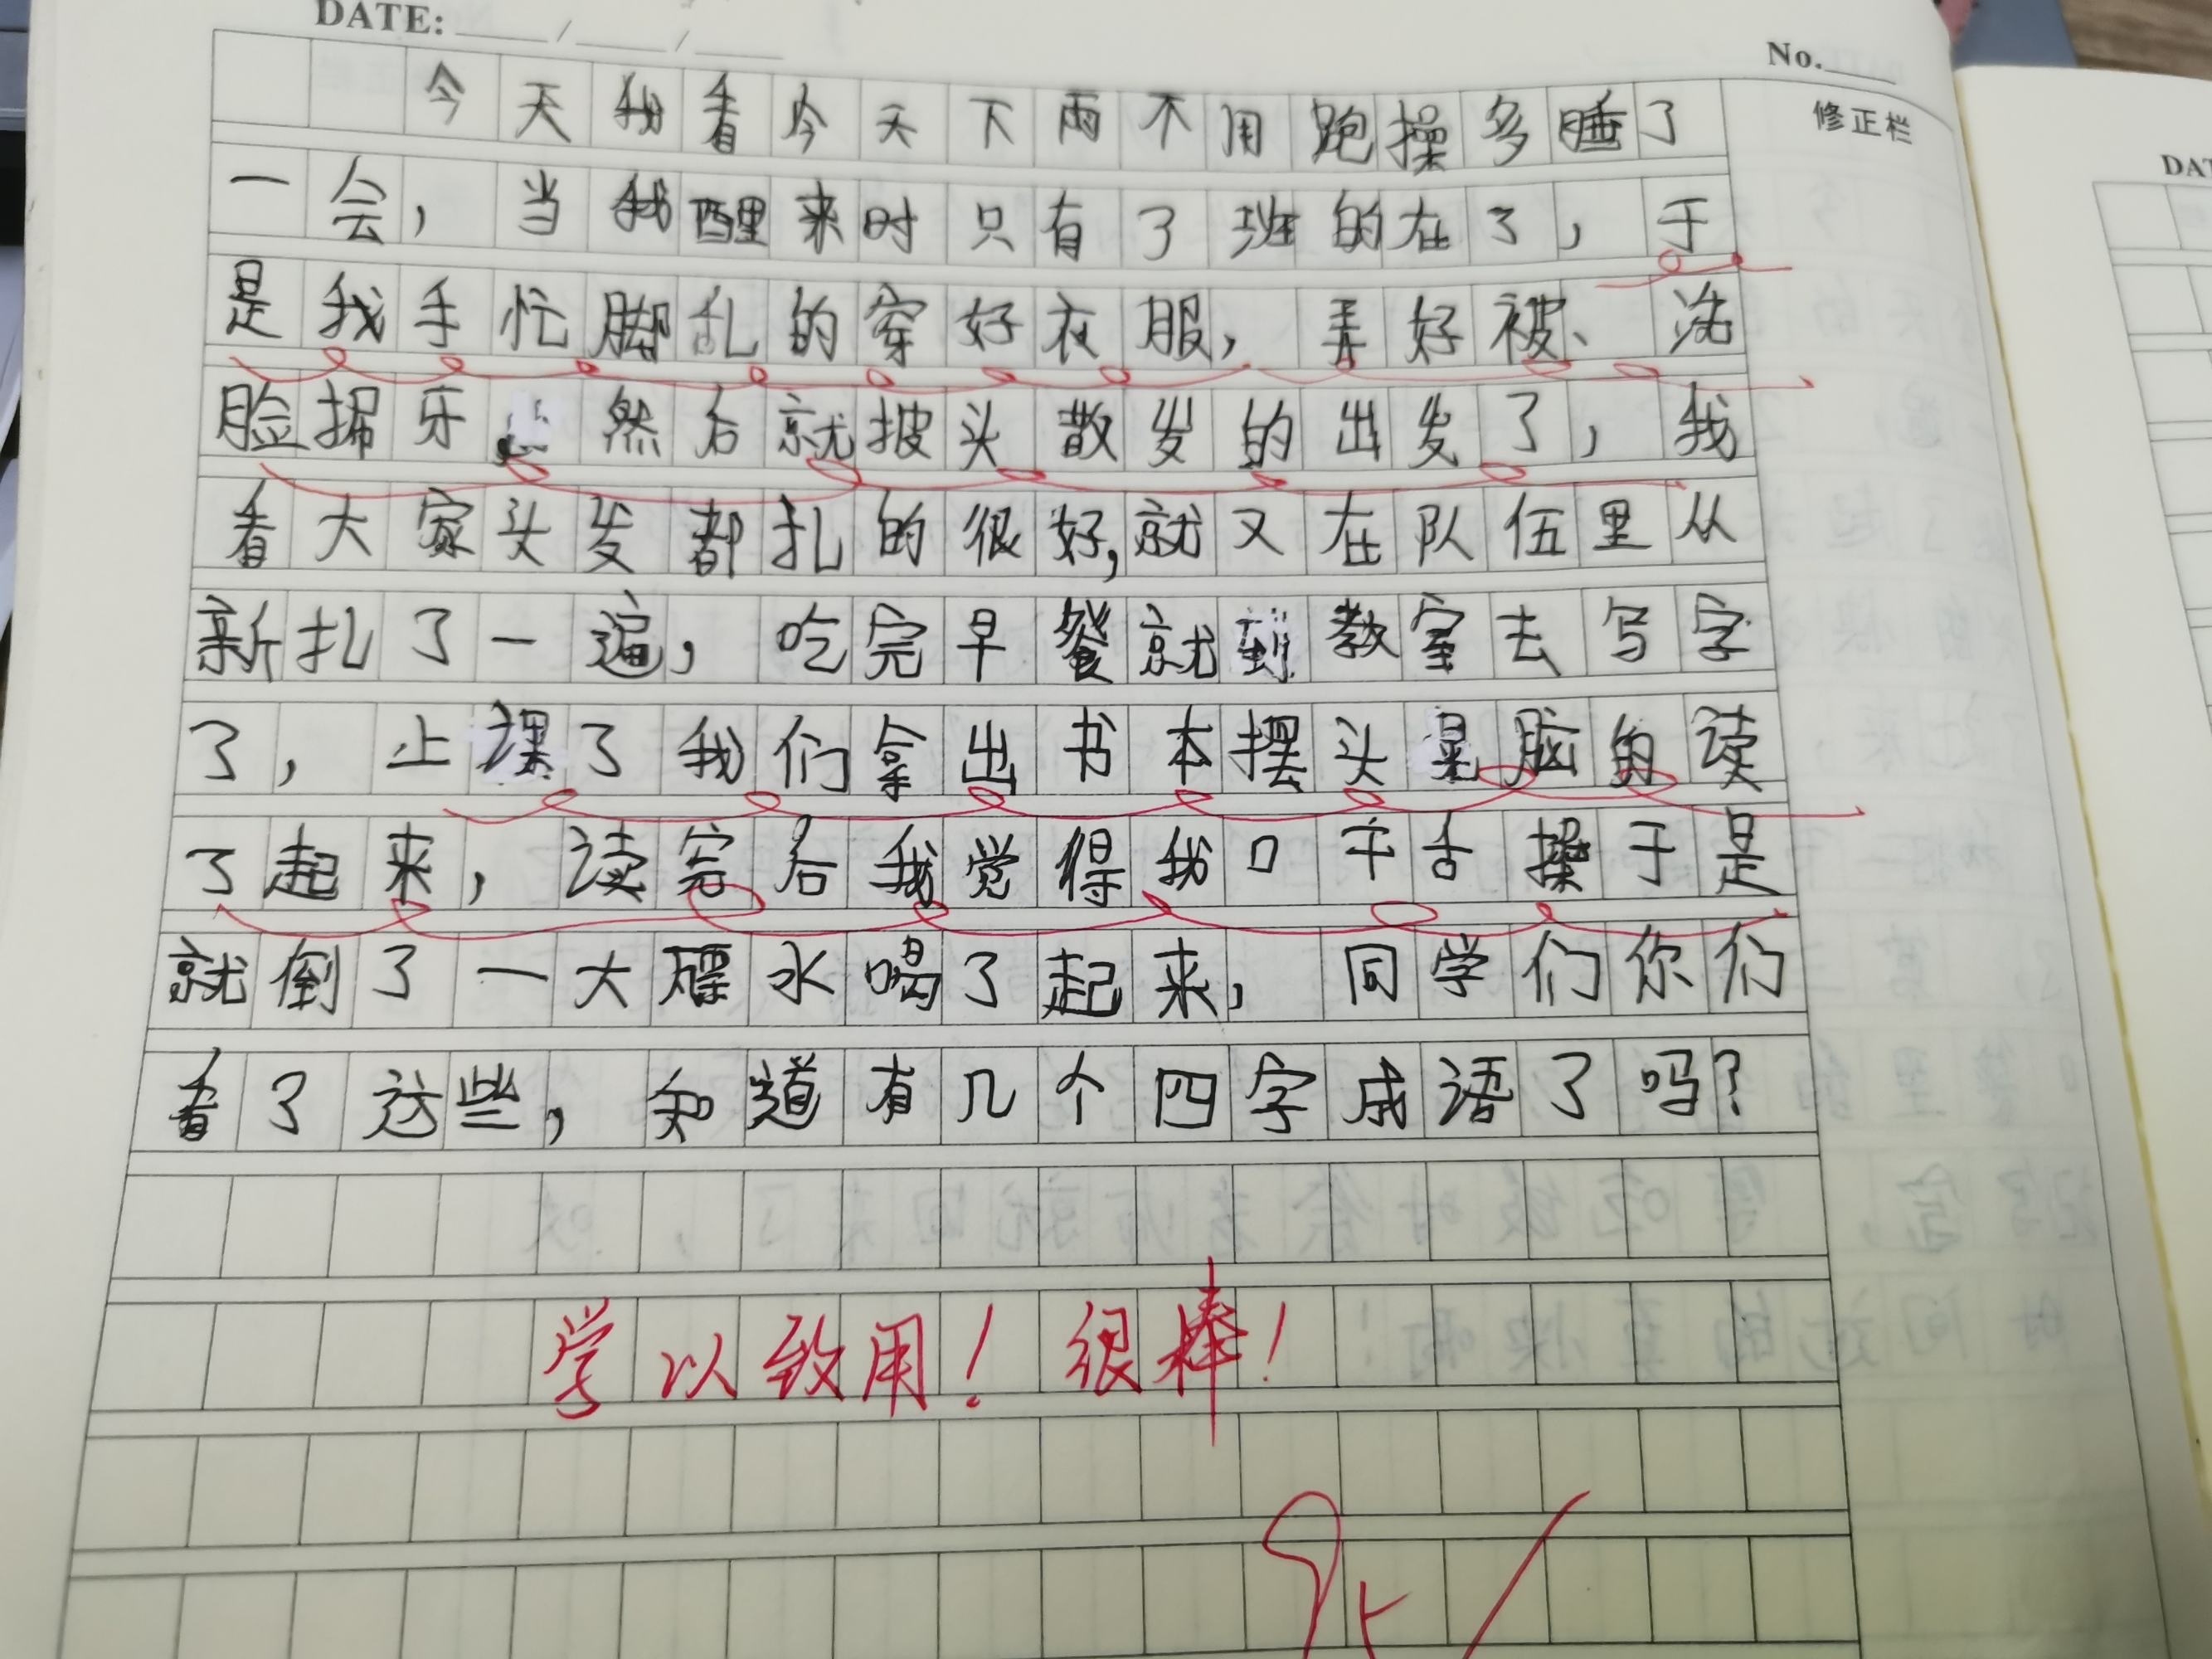 DATE: ____/____/____
No.____
修正栏
今天我看今天下雨不用跑操多睡了
一会，当我醒来时只有了班的在了，于
是我手忙脚乱的穿好衣服，弄好被、洗
脸掃牙 然后就披头散发的出发了，我
看大家头发都扎的很好，就又在队伍里从
新扎了一遍，吃完早餐就到教室去写字
了，上课了我们拿出书本摆头晃脑的读
了起来，读完后我觉得我口干舌操于是
就倒了一大碟水喝了起来，同学们你们
看了这些，知道有几个四字成语了吗？
学以致用！很棒！
DAT